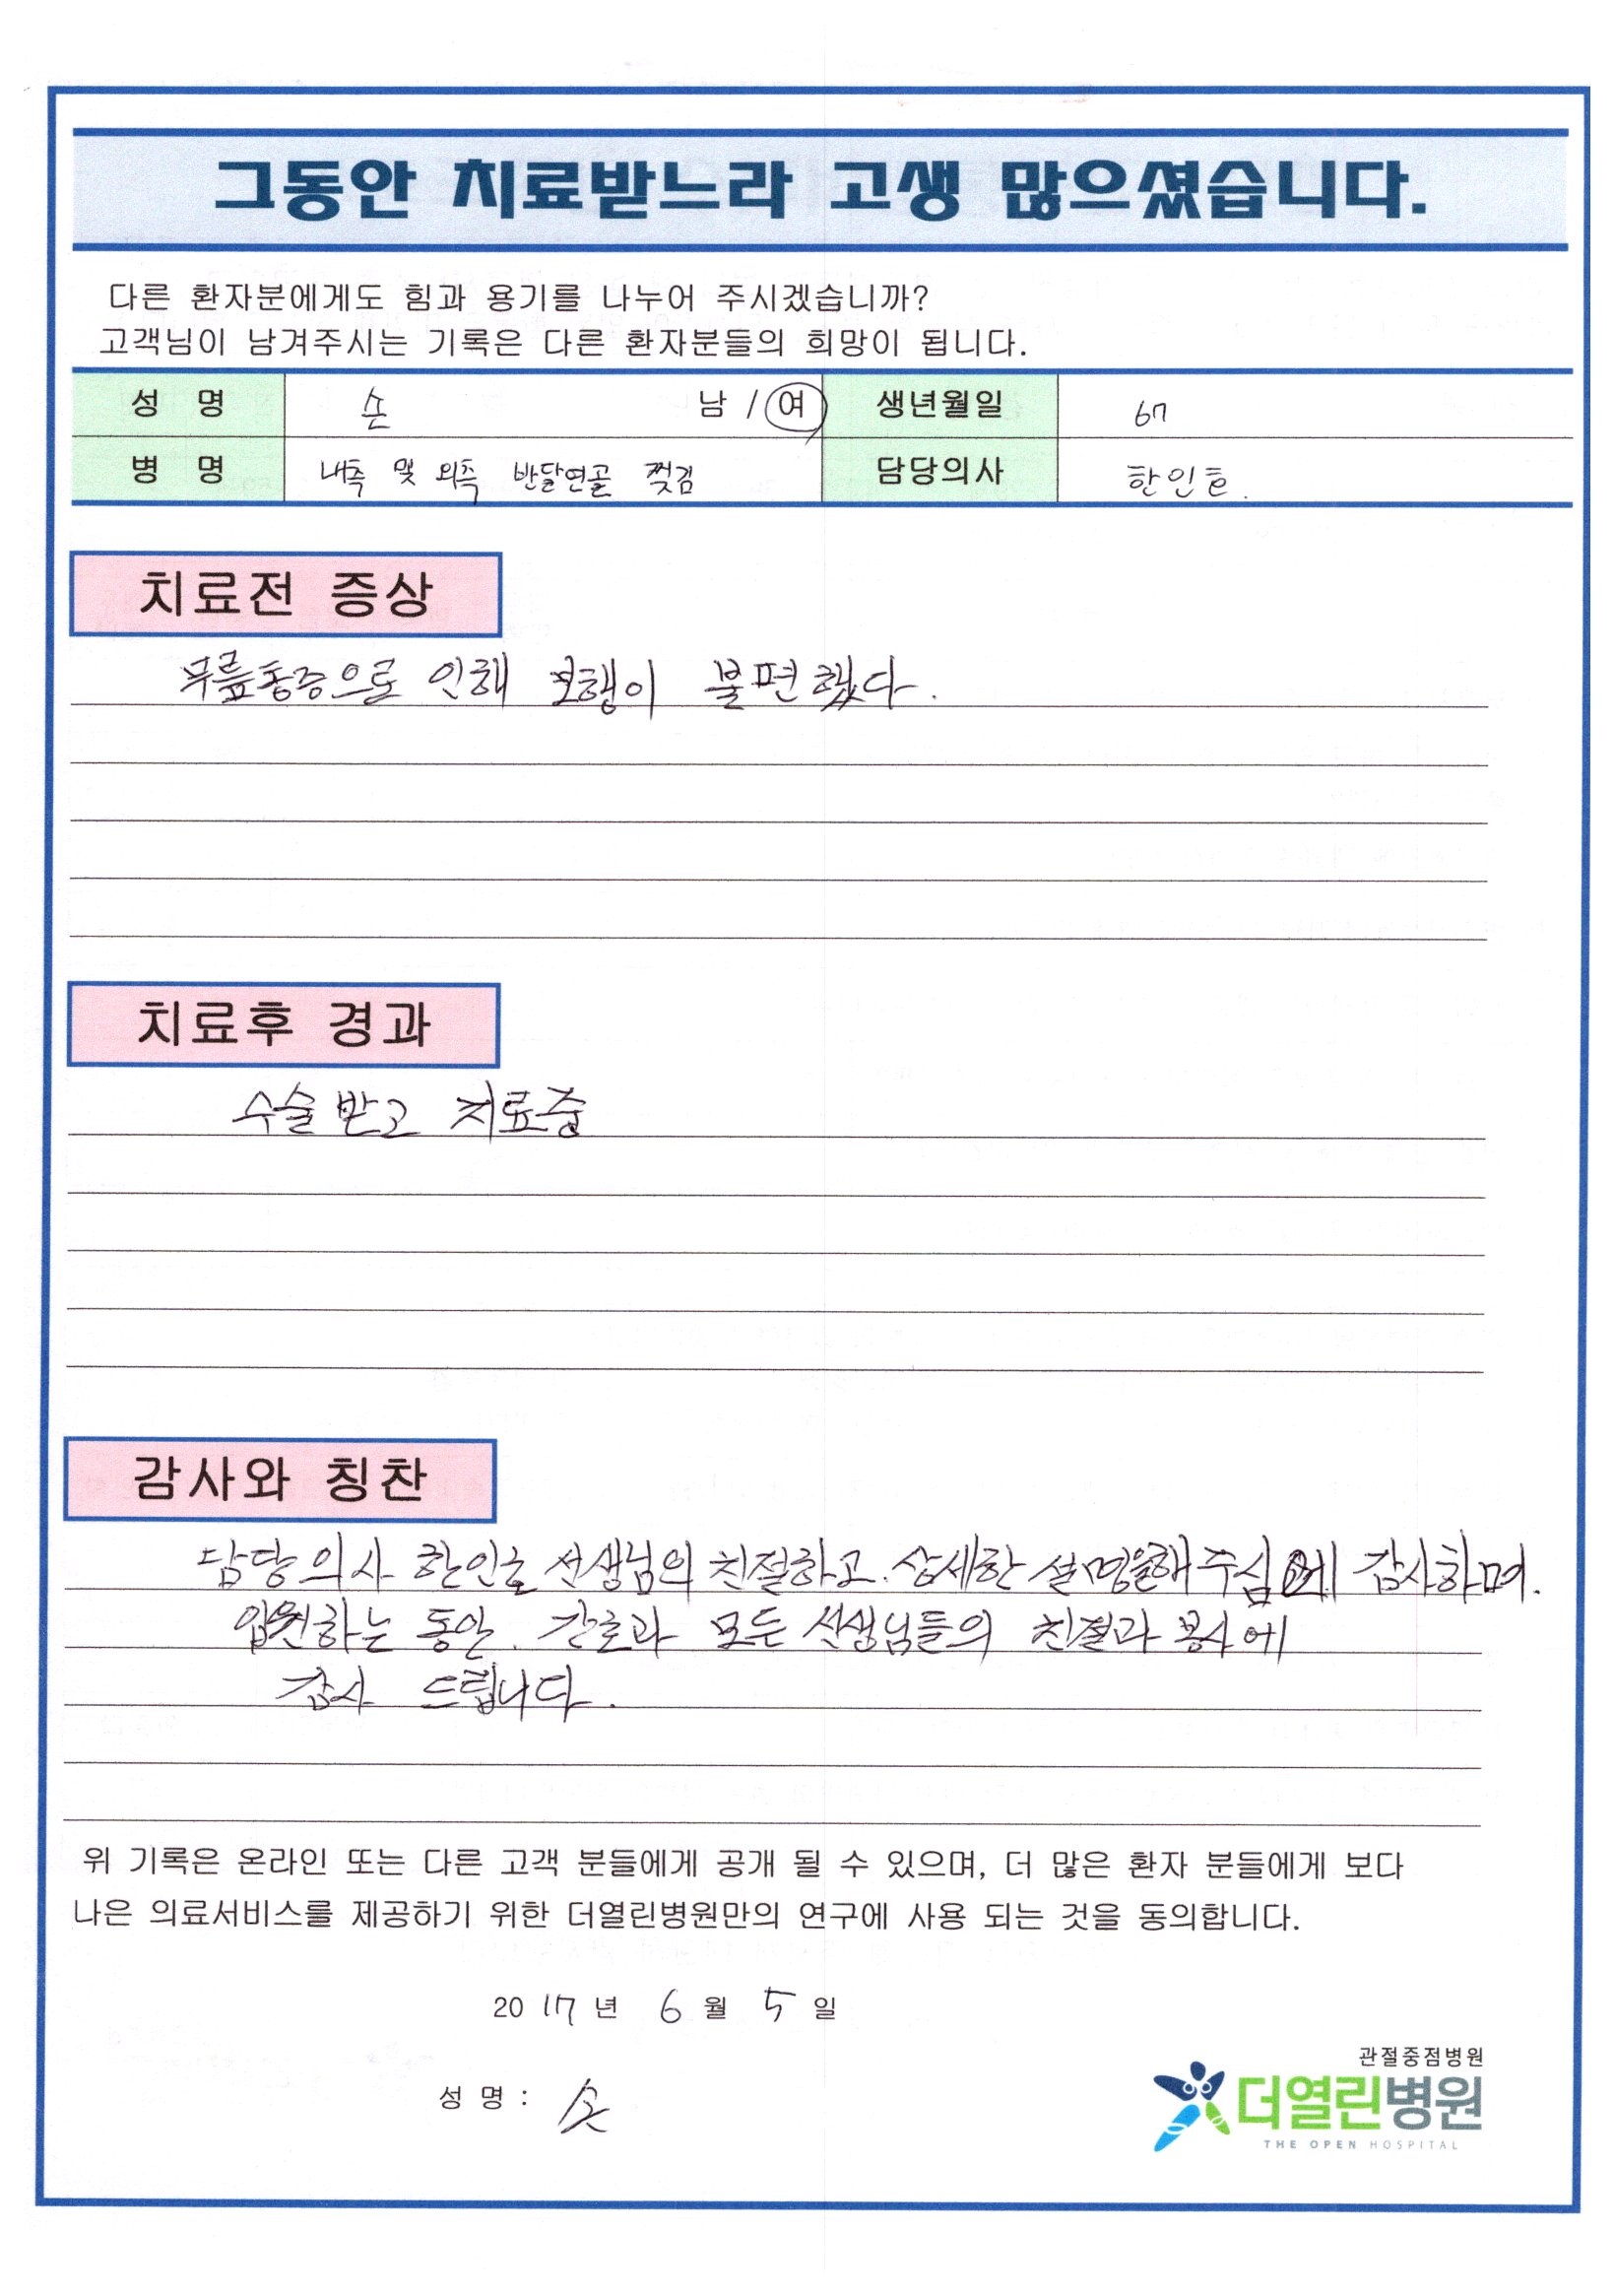 그동안 치료받느라 고생 많으셨습니다.
다른 환자분에게도 힘과 용기를 나누어 주시겠습니까?
고객님이 남겨주시는 기록은 다른 환자분들의 희망이 됩니다.
성 명 손 남 / 여 생년월일 67
병 명 내측 및 외측 반달연골 찢김 담당의사 한인호.
치료전 증상
무릎통증으로 인해 보행이 불편했다.
치료후 경과
수술받고 치료중
감사와 칭찬
담당의사 한인호 선생님의 친절하고. 상세한 설명을해주심에 감사하며.
입원하는 동안. 간호과 모든 선생님들의 친절과 봉사에
감사 드립니다.
위 기록은 온라인 또는 다른 고객 분들에게 공개 될 수 있으며, 더 많은 환자 분들에게 보다
나은 의료서비스를 제공하기 위한 더열린병원만의 연구에 사용 되는 것을 동의합니다.
2017년 6월 5일
성 명 : 손
관절중점병원
더열린병원
THE OPEN HOSPITAL